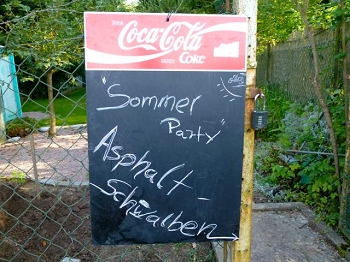 Coca-Cola
Coke
"Sommer
Party"
Asphalt-
Schwalben